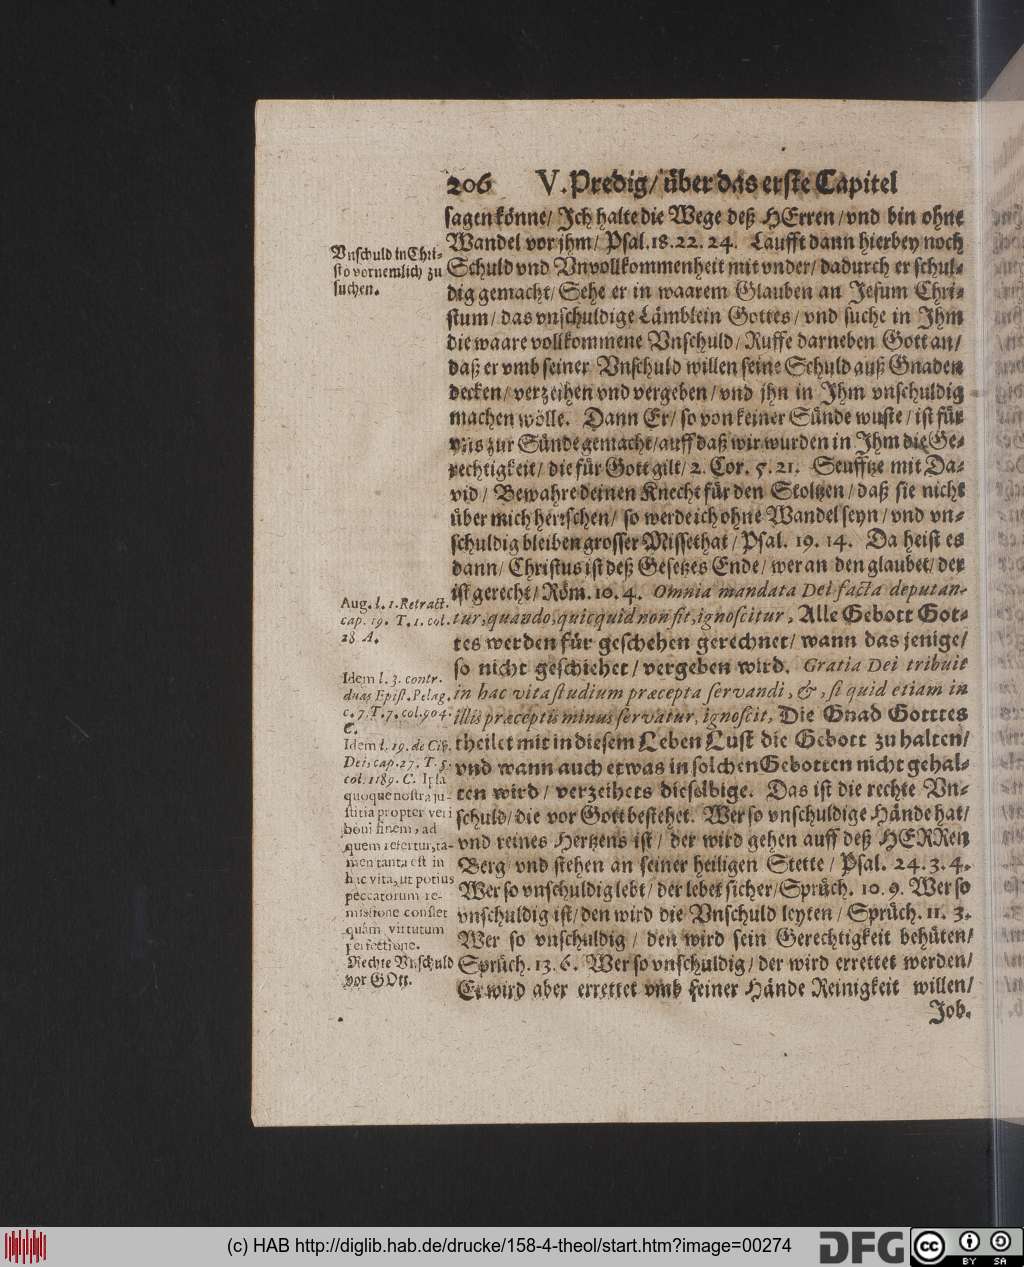 206 V. Predig/ über das erste Capitel
sagen könne/ Jch halte die Wege deß HErren/ vnd bin ohne
Wandel vor jhm/ Psal. 18. 22. 24. Laufft dann hierbey noch
Schuld vnd Vnvollkommenheit mit vnder/ dadurch er schul-
dig gemacht/ Sehe er in waarem Glauben an Jesum Chri-
stum/ das vnschuldige Lämblein Gottes/ vnd suche in Jhm
die waare vollkommene Vnschuld/ Ruffe darneben Gott an/
daß er vmb seiner Vnschuld willen seine Schuld auß Gnaden
decken/ verzeihen vnd vergeben/ vnd jhn in Jhm vnschuldig
machen wölle. Dann Er/ so von keiner Sünde wuste/ ist für
vns zur Sünde gemacht/ auff daß wir wurden in Jhm die Ge-
rechtigkeit/ die für Gott gilt/ 2. Cor. 5. 21. Seufftze mit Da-
vid/ Bewahre deinen Knecht für den Stoltzen/ daß sie nicht
über mich herrschen/ so werde ich ohne Wandel seyn/ vnd vn-
schuldig bleiben grosser Missethat/ Psal. 19. 14. Da heist es
dann/ Christus ist deß Gesetzes Ende/ wer an den glaubet/ der
ist gerecht/ Röm. 10. 4. Omnia mandata Dei facta deputan-
tur, quando, quicquid non fit, ignoscitur, Alle Gebott Got-
tes werden für geschehen gerechnet/ wann das jenige/
so nicht geschiehet/ vergeben wird. Gratia Dei tribuit
in hac vita studium præcepta servandi, &, si quid etiam in
illis præceptis minus servatur, ignoscit, Die Gnad Gotttes
theilet mit in diesem Leben Lust die Gebott zu halten/
vnd wann auch etwas in solchen Gebotten nicht gehal-
ten wird/ verzeihets dieselbige. Das ist die rechte Vn-
schuld/ die vor Gott bestehet. Wer so vnschuldige Hände hat/
vnd reines Hertzens ist/ der wird gehen auff deß HERRen
Berg/ vnd stehen an seiner heiligen Stette/ Psal. 24. 3. 4.
Wer so vnschuldig lebt/ der lebet sicher/ Sprüch. 10. 9. Wer so
vnschuldig ist/ den wird die Vnschuld leyten/ Sprüch. 11. 3.
Wer so vnschuldig/ den wird sein Gerechtigkeit behüten/
Sprüch. 13. 6. Wer so vnschuldig/ der wird errettet werden/
Er wird aber errettet vmb seiner Hände Reinigkeit willen/
Job.
Vnschuld in Chri-
sto vornemlich zu
suchen.
Aug. l. 1. Retract.
cap. 19. T. 1. col.
28 A.
Idem l. 3. contr.
duas Epist. Pelag.
c. 7. T. 7. col. 904.
C.
Idem l. 19. de Civ.
Dei, cap. 27. T. 5.
col. 1189. C. Ipsa
quoque nostra ju-
stitia propter veri
boni finem, ad
quem refertur, ta-
men tanta est in
hac vita, ut potius
peccatorum re-
missione constet
quàm virtutum
perfectione.
Rechte Vnschuld
vor GOtt.
(c) HAB http://diglib.hab.de/drucke/158-4-theol/start.htm?image=00274
DFG
cc
BY SA